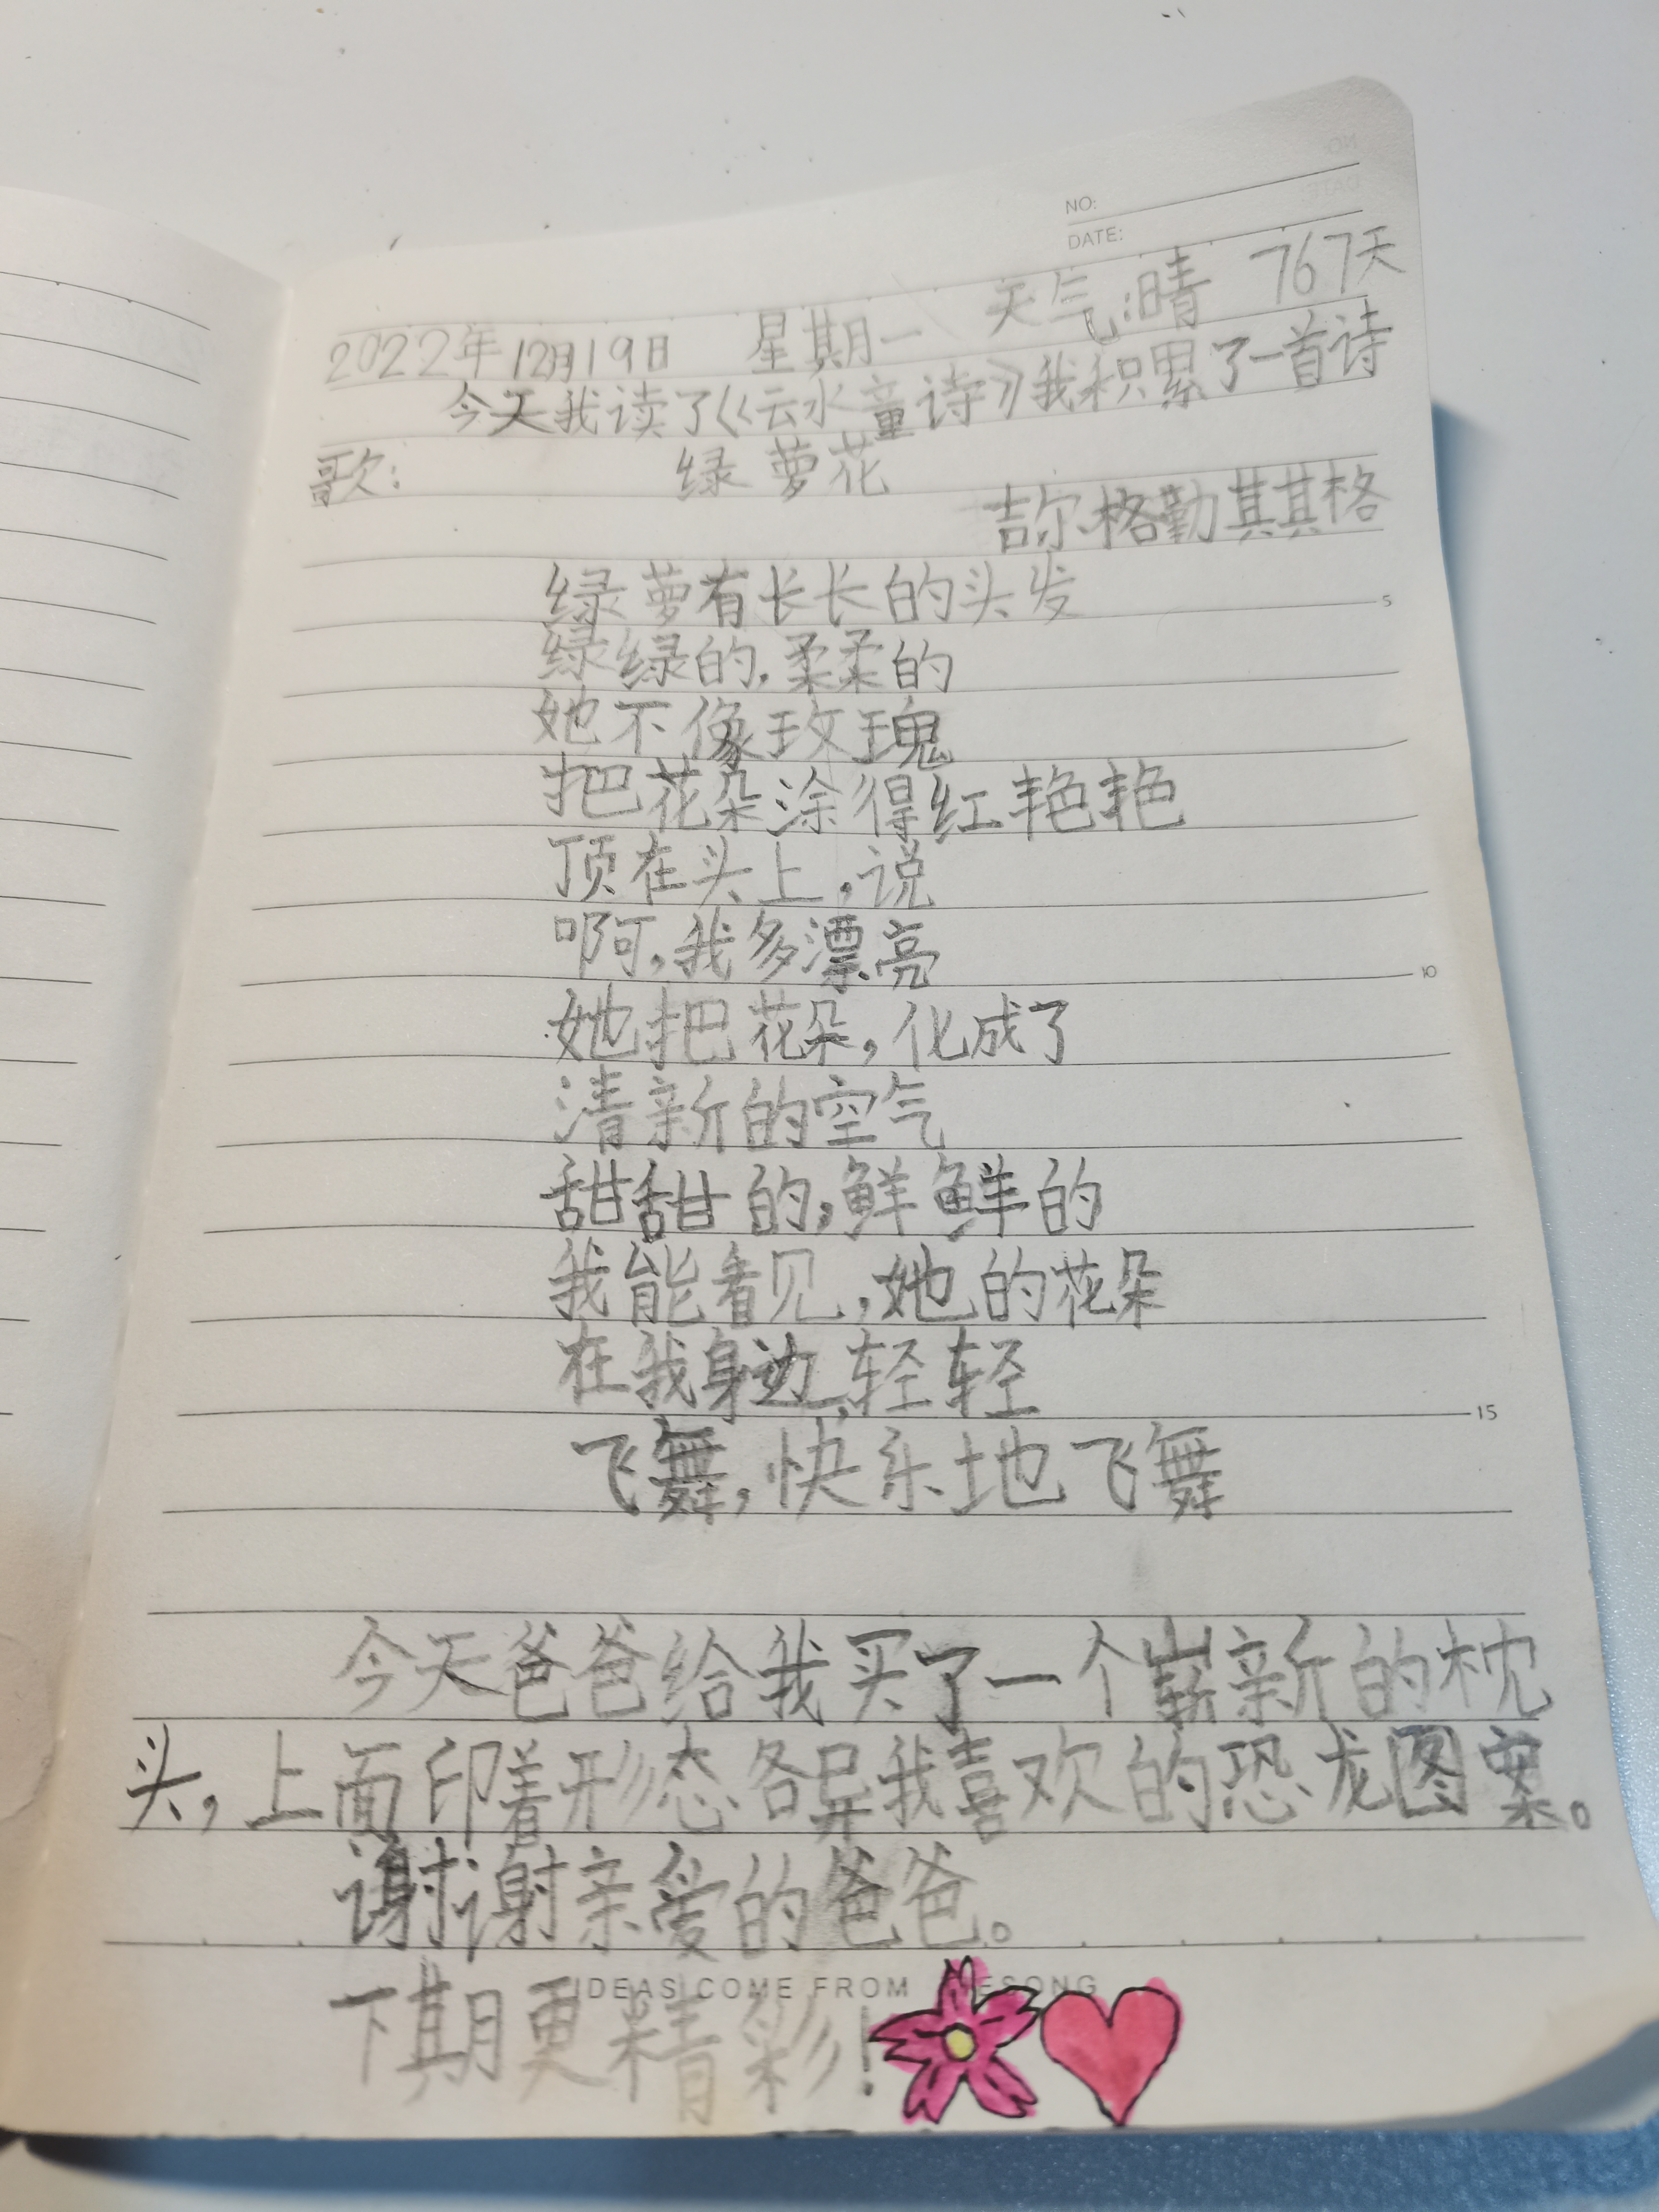 NO:
DATE:
2022年12月19日 星期一 天气:晴 767天
今天我读了《云水童诗》我积累了一首诗
歌: 绿萝花
吉尔格勤其其格
绿萝有长长的头发
5
绿绿的,柔柔的
她不像玫瑰
把花朵涂得红艳艳
顶在头上,说
啊,我多漂亮
10
她把花朵,化成了
清新的空气
甜甜的,鲜鲜的
我能看见,她的花朵
在我身边,轻轻
15
飞舞,快乐地飞舞
今天爸爸给我买了一个崭新的枕
头,上面印着形态各异我喜欢的恐龙图案。
谢谢亲爱的爸爸。
IDEAS COME FROM
下期更精彩!